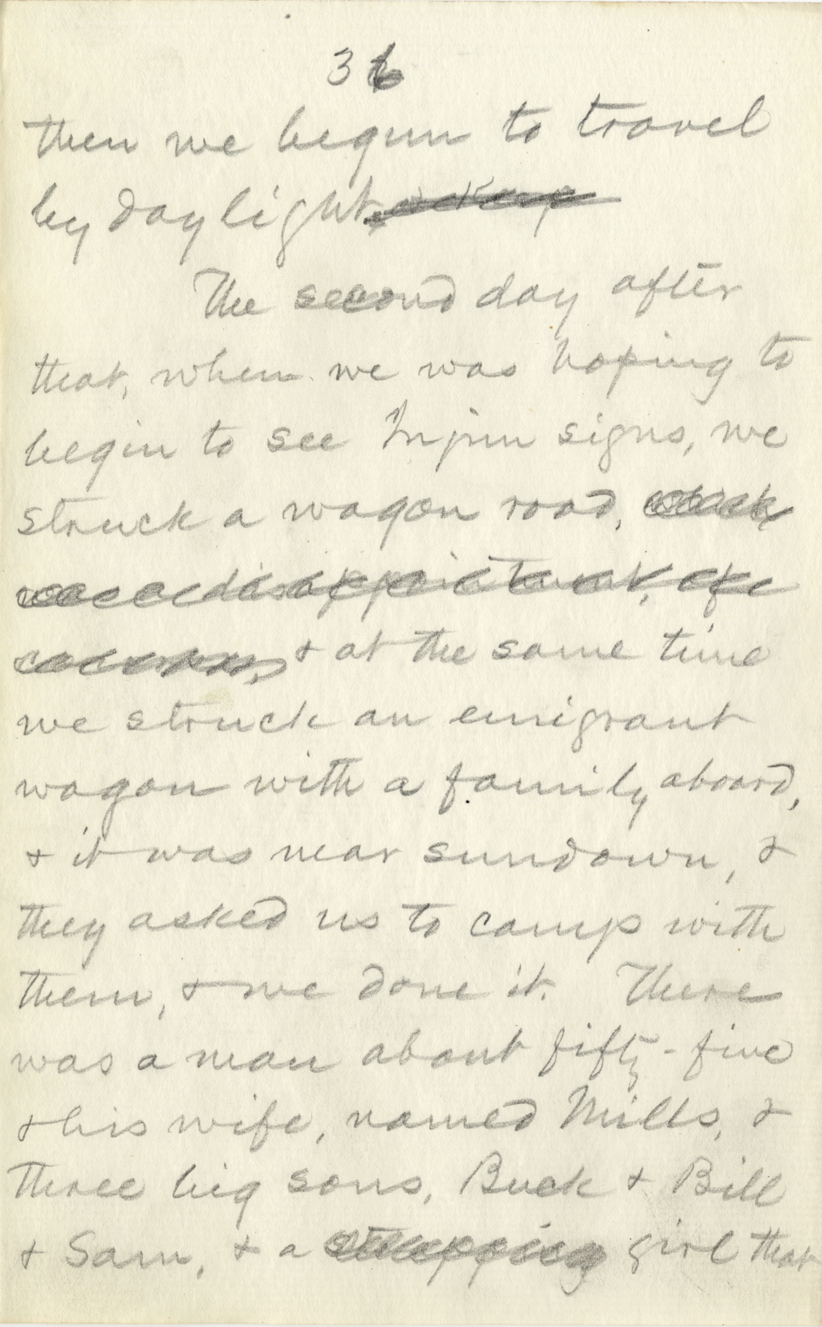 36
then we begun to travel
by daylight.
The second day after
that, when we was hoping to
begin to see Injun signs, we
struck a wagon road, which
was a disappointment, of
& at the same time
we struck an emigrant
wagon with a family aboard,
& it was near sundown, &
they asked us to camp with
them, & we done it. There
was a man about fifty-five
& his wife, named Mills, &
three big sons, Buck & Bill
& Sam, & a strapping girl that